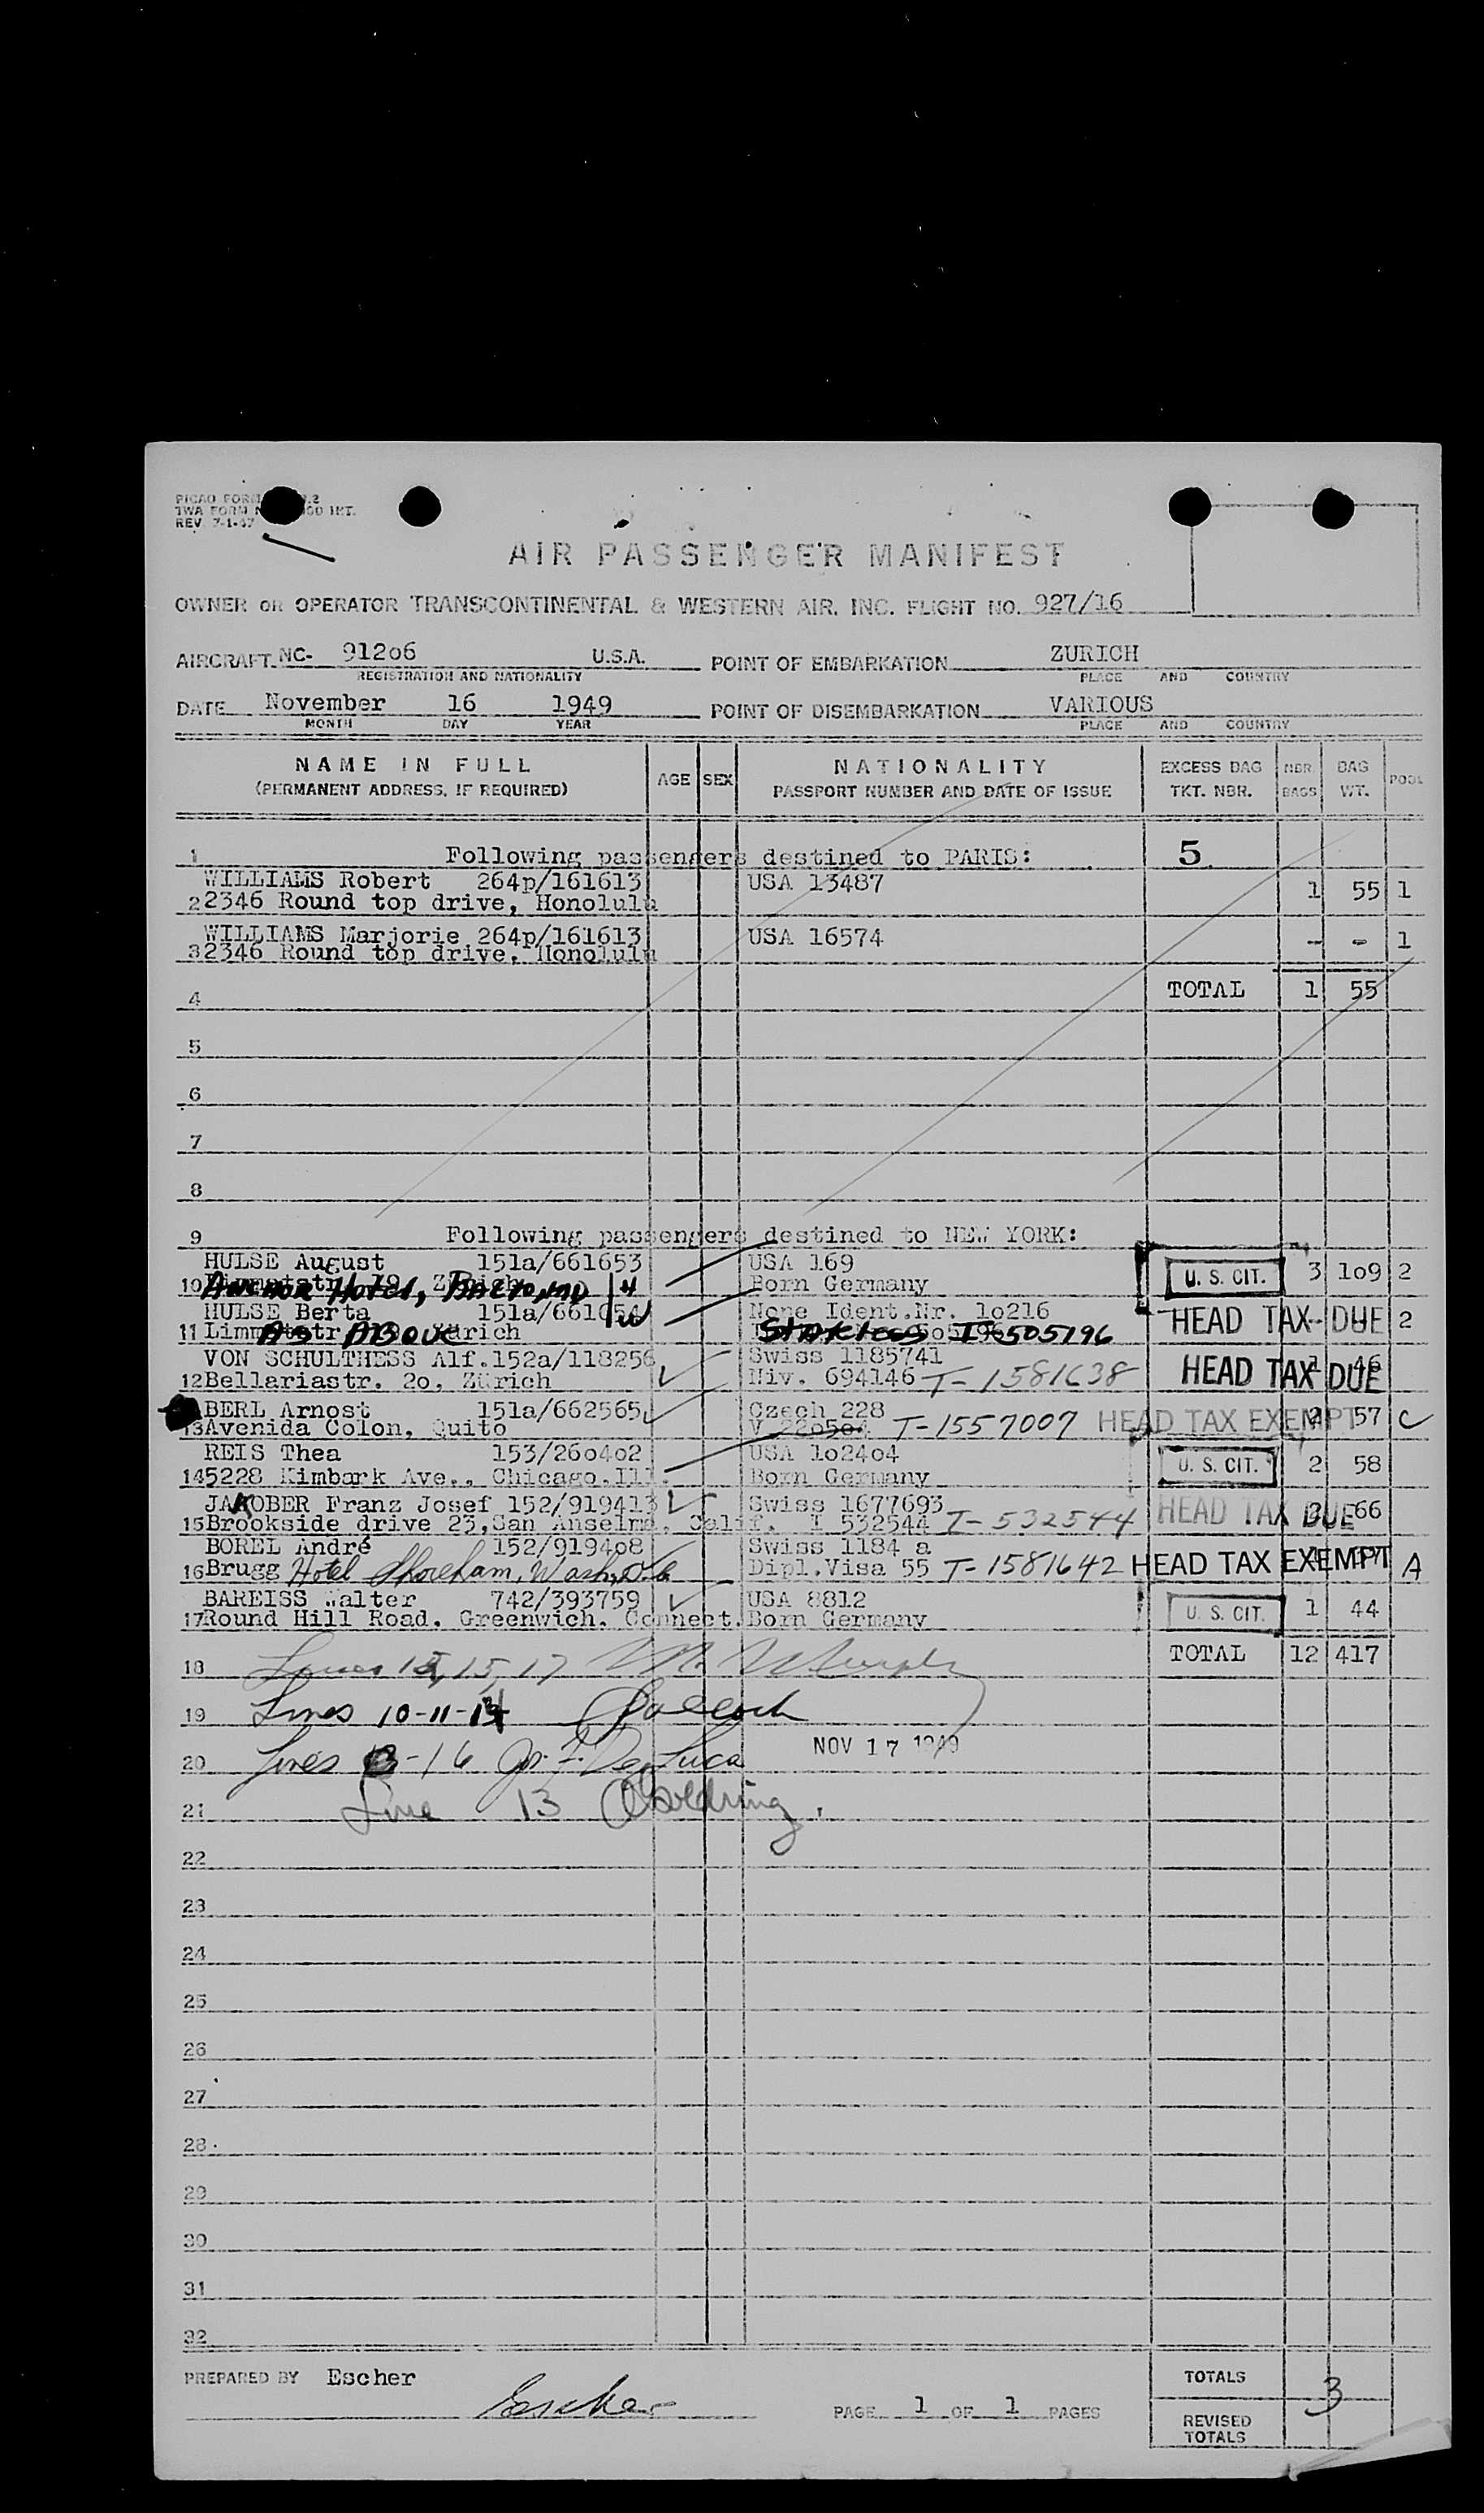 REV. 7-1-47
AIR PASSENGER MANIFEST
OWNER OR OPERATOR TRANSCONTINENTAL & WESTERN AIR. INC. FLIGHT NO. 927/16
AIRCRAFT NC- 912o6 U.S.A. POINT OF EMBARKATION ZURICH
REGISTRATION AND NATIONALITY PLACE AND COUNTRY
DATE November 16 1949 POINT OF DISEMBARKATION VARIOUS
MONTH DAY YEAR PLACE AND COUNTRY
NAME IN FULL AGE SEX NATIONALITY EXCESS BAG NBR. BAG POOL
(PERMANENT ADDRESS, IF REQUIRED) PASSPORT NUMBER AND DATE OF ISSUE TKT. NBR. BAGS WT.
1 Following passengers destined to PARIS: 5
WILLIAMS Robert 264p/161613 USA 13487 1 55 1
2 2346 Round top drive, Honolulu
WILLIAMS Marjorie 264p/161613 USA 16574 - - 1
3 2346 Round top drive, Honolulu
4 TOTAL 1 55
5
6
7
8
9 Following passengers destined to NEW YORK:
HULSE August 151a/661653 USA 169 U. S. CIT. 3 1o9 2
10 Hotel, Born Germany
HULSE Berta None Ident.Nr. 1o216 HEAD TAX DUE 2
11 AS ABOVE Zürich Stateless I-505196
VON SCHULTHESS Alf. 152a/118256 Swiss 1185741 HEAD TAX DUE 46
12 Bellariastr. 2o, Zürich Niv. 694146 T-1581638
BERL Arnost 151a/662565 Czech 228 HEAD TAX EXEMPT 57 C
13 Avenida Colon, Quito T-1557007
REIS Thea 153/26o4o2 USA 1o24o4 U. S. CIT. 2 58
14 5228 Kimbark Ave., Chicago.Ill. Born Germany
JAKOBER Franz Josef 152/919413 Swiss 1677693 HEAD TAX DUE 66
15 Brookside drive 23,San Anselmo, Calif. I 532544 I-532544
BOREL André 152/9194o8 Swiss 1184 a HEAD TAX EXEMPT A
16 Brugg Hotel Shoreham, Wash, D.C. Dipl.Visa 55 T-1581642
BAREISS Walter 742/393759 USA 8812 U. S. CIT. 1 44
17 Round Hill Road. Greenwich. Connect. Born Germany
18 Lines 15, 17 TOTAL 12 417
19 Lines 10-11-14
20 Lines -16 De Luca NOV 17 1949
21 Line 13 Goldring
22
23
24
25
26
27
28
29
30
31
32
PREPARED BY Escher TOTALS 3
Escher PAGE 1 OF 1 PAGES
REVISED
TOTALS